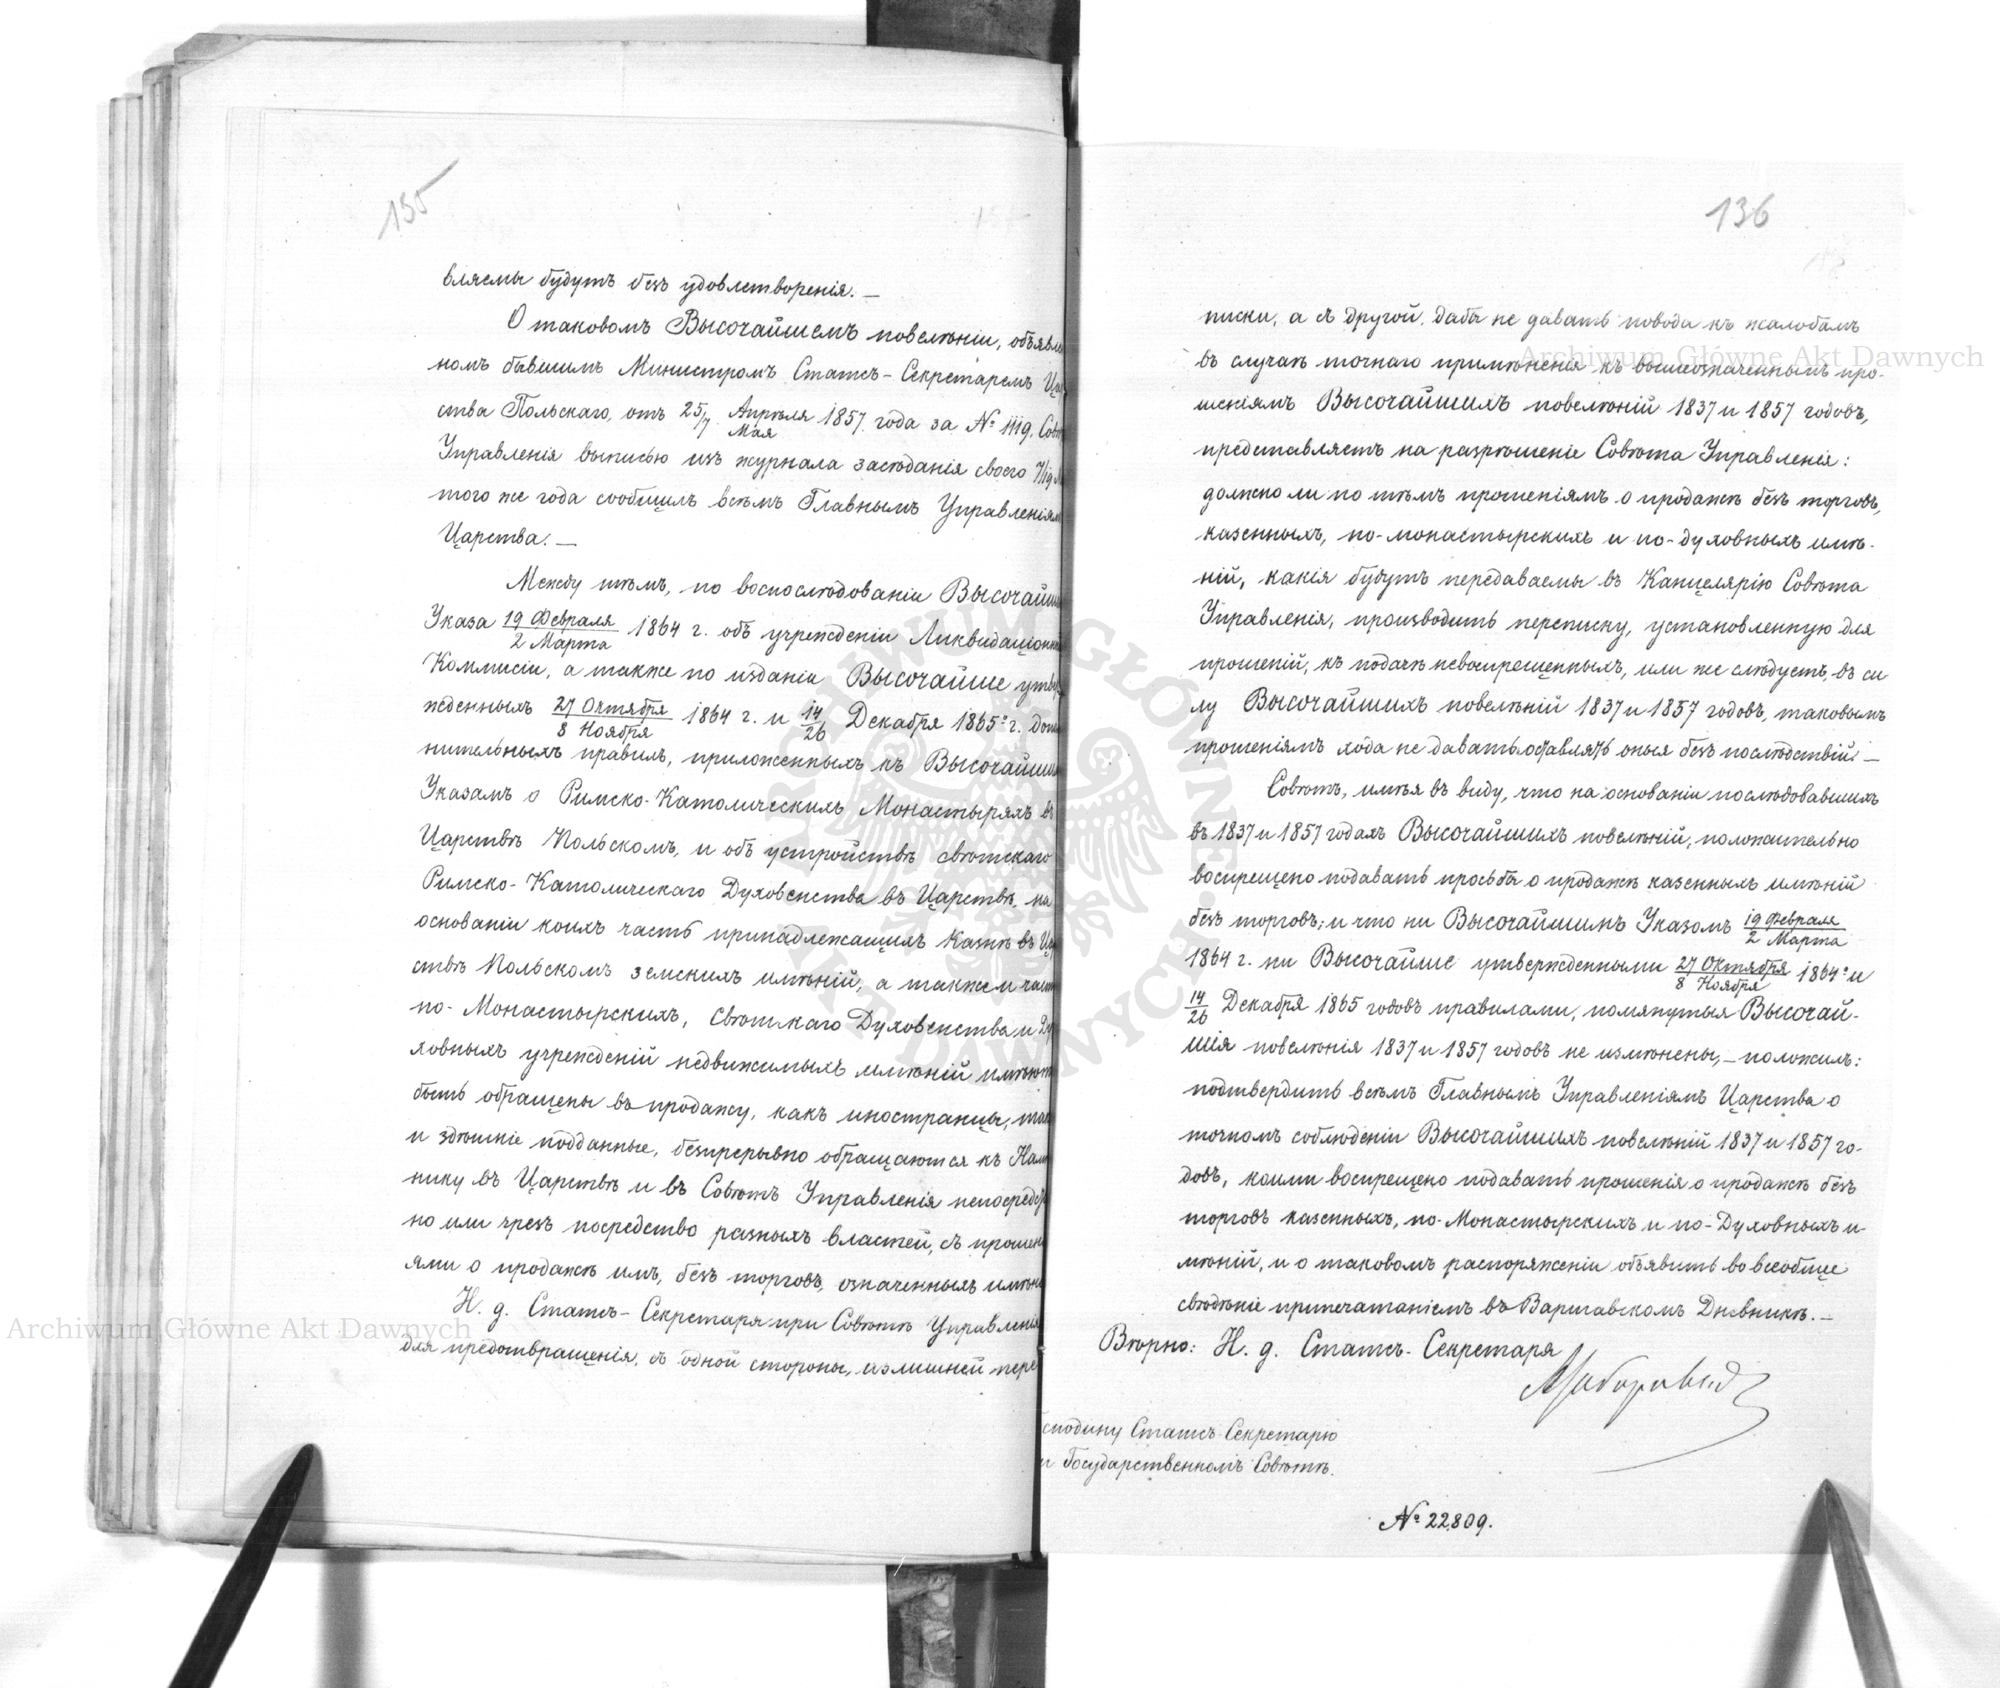 135
вляемы будутъ безъ удовлетворенія. —
О таковомъ Высочайшемъ повелѣніи, объявлен
номъ бывшимъ Министромъ Статсъ-Секретаремъ Цар
ства Польскаго, отъ 25/7 Апрѣля/Мая 1857 года за № 1119, Совѣт
Управленія выписью изъ журнала засѣданія своего 7/19 М
того же года сообщилъ всѣмъ Главнымъ Управленіям
Царства. —
Между тѣмъ, по воспослѣдованіи Высочайш
Указа 19 Февраля/2 Марта 1864 г. объ учрежденіи Ликвидаціонн
Коммисіи, а также по изданіи Высочайше утвер
жденныхъ 27 Октября/8 Ноября 1864 г. и 14/26 Декабря 1865 г. допол
нительныхъ правилъ, приложенныхъ къ Высочайши
Указамъ о Римско-Католическихъ Монастыряхъ въ
Царствѣ Польскомъ, и объ устройствѣ свѣтскаго
Римско-Католическаго Духовенства въ Царствѣ, на
основаніи коихъ часть принадлежащихъ Казнѣ въ Цар
ствѣ Польскомъ земскихъ имѣній, а также и част
по-Монастырскихъ, Свѣтскаго Духовенства и Ду
ховныхъ учрежденій недвижимыхъ имѣній имѣютъ
быть обращены въ продажу, какъ иностранцы, так
и здѣшніе подданные, безпрерывно обращаются къ Намѣ
нику въ Царствѣ и въ Совѣтъ Управленія непосредст
но или чрезъ посредство разныхъ властей, съ прошен
ями о продажѣ имъ, безъ торговъ, означенныхъ имѣн
Н. д. Статсъ-Секретаря при Совѣтѣ Управленія
для предотвращенія, съ одной стороны, излишней пере
136
писки, а съ другой, дабы не давать повода къ жалобамъ
въ случаѣ точнаго примѣненія къ вышеозначеннымъ про-
шеніямъ Высочайшихъ повелѣній 1837 и 1857 годовъ,
представляетъ на разрѣшеніе Совѣта Управленія:
должно ли по тѣмъ прошеніямъ о продажѣ безъ торговъ,
казенныхъ, по-монастырскихъ и по-духовныхъ имѣ-
ній, какія будутъ передаваемы въ Канцелярію Совѣта
Управленія, производить переписку, установленную для
прошеній, къ подачѣ невоспрещенныхъ, или же слѣдуетъ, въ си
лу Высочайшихъ повелѣній 1837 и 1857 годовъ, таковымъ
прошеніямъ хода не давать, оставлять оныя безъ послѣдствій? —
Совѣтъ, имѣя въ виду, что на основаніи послѣдовавшихъ
въ 1837 и 1857 годахъ Высочайшихъ повелѣній, положительно
воспрещено подавать просьбы о продажѣ казенныхъ имѣній
безъ торговъ; и что ни Высочайшимъ Указомъ 19 Февраля/2 Марта
1864 г. ни Высочайше утвержденными 27 Октября/8 Ноября 1864 г. и
14/26 Декабря 1865 годовъ правилами, помянутыя Высочай-
шія повелѣнія 1837 и 1857 годовъ не измѣнены, — положилъ:
подтвердить всѣмъ Главнымъ Управленіямъ Царства о
точномъ соблюденіи Высочайшихъ повелѣній 1837 и 1857 го-
довъ, коими воспрещено подавать прошенія о продажѣ безъ
торговъ казенныхъ, по-Монастырскихъ и по-Духовныхъ и-
мѣній, и о таковомъ распоряженіи объявить во всеобщее
свѣдѣніе припечатаніемъ въ Варшавскомъ Дневникѣ. —
Вѣрно: Н. д. Статсъ-Секретаря
сподину Статсъ-Секретарю
и Государственномъ Совѣтѣ.
№ 22809.
Archiwum Główne Akt Dawnych
Archiwum Główne Akt Dawnych
ARCHIWUM GŁÓWNE AKT DAWNYCH